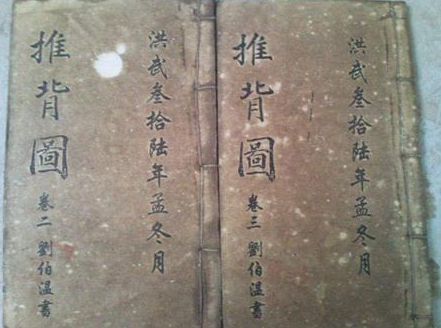 推背圖 卷二 劉伯溫書
洪武叁拾陆年孟冬月
推背圖 卷三 劉伯溫書
洪武叁拾陆年孟冬月